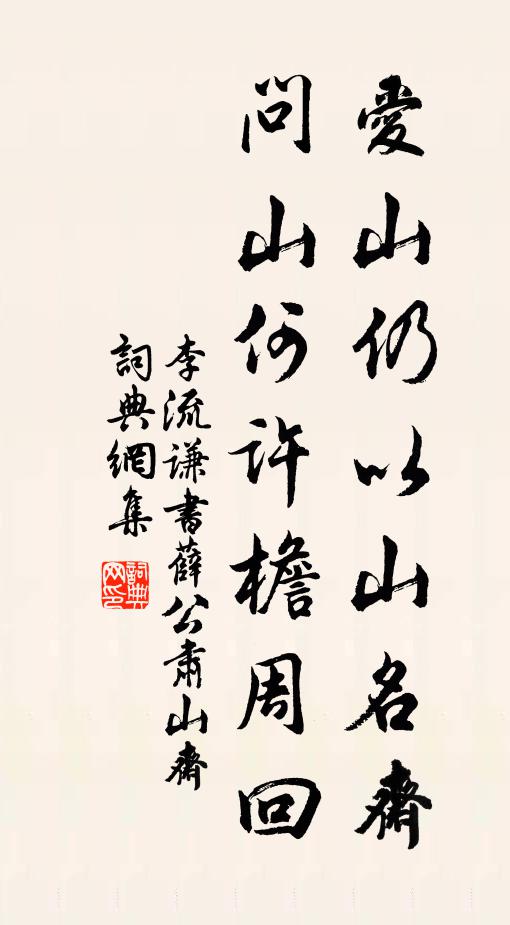 愛山仍以山名齋
問山何許檐周回
李流謙書薛公肅山齋
詞典網集
詞典网印